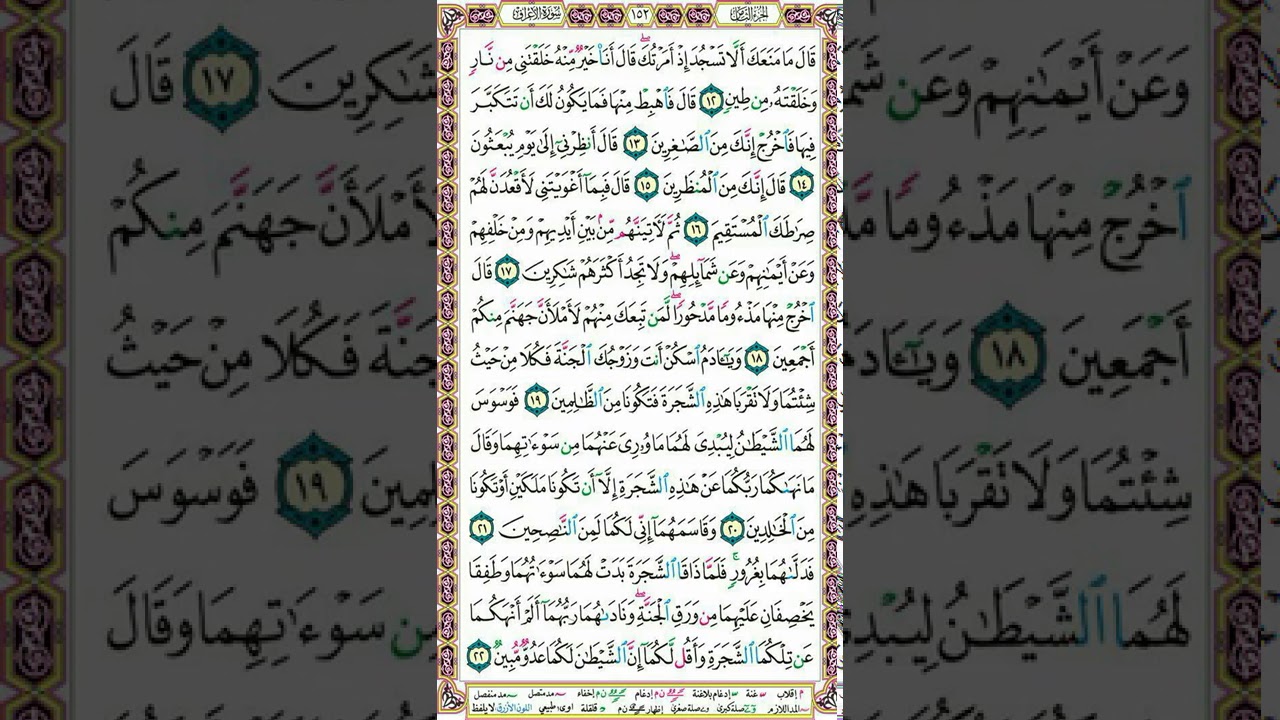 سورة الأعراف ١٥٢ الجزء الثامن
قَالَ مَا مَنَعَكَ أَلَّا تَسْجُدَ إِذْ أَمَرْتُكَ ۖ قَالَ أَنَا۠ خَيْرٌ مِّنْهُ خَلَقْتَنِى مِن نَّارٍ
وَخَلَقْتَهُۥ مِن طِينٍ ١٢ قَالَ فَٱهْبِطْ مِنْهَا فَمَا يَكُونُ لَكَ أَن تَتَكَبَّرَ
فِيهَا فَٱخْرُجْ إِنَّكَ مِنَ ٱلصَّـٰغِرِينَ ١٣ قَالَ أَنظِرْنِىٓ إِلَىٰ يَوْمِ يُبْعَثُونَ
١٤ قَالَ إِنَّكَ مِنَ ٱلْمُنظَرِينَ ١٥ قَالَ فَبِمَآ أَغْوَيْتَنِى لَأَقْعُدَنَّ لَهُمْ
صِرَٰطَكَ ٱلْمُسْتَقِيمَ ١٦ ثُمَّ لَـَٔاتِيَنَّهُم مِّنۢ بَيْنِ أَيْدِيهِمْ وَمِنْ خَلْفِهِمْ
وَعَنْ أَيْمَـٰنِهِمْ وَعَن شَمَآئِلِهِمْ ۖ وَلَا تَجِدُ أَكْثَرَهُمْ شَـٰكِرِينَ ١٧ قَالَ
ٱخْرُجْ مِنْهَا مَذْءُومًا مَّدْحُورًا ۖ لَّمَن تَبِعَكَ مِنْهُمْ لَأَمْلَأَنَّ جَهَنَّمَ مِنكُمْ
أَجْمَعِينَ ١٨ وَيَـٰٓـَٔادَمُ ٱسْكُنْ أَنتَ وَزَوْجُكَ ٱلْجَنَّةَ فَكُلَا مِنْ حَيْثُ
شِئْتُمَا وَلَا تَقْرَبَا هَـٰذِهِ ٱلشَّجَرَةَ فَتَكُونَا مِنَ ٱلظَّـٰلِمِينَ ١٩ فَوَسْوَسَ
لَهُمَا ٱلشَّيْطَـٰنُ لِيُبْدِىَ لَهُمَا مَا وُۥرِىَ عَنْهُمَا مِن سَوْءَٰتِهِمَا وَقَالَ
مَا نَهَىٰكُمَا رَبُّكُمَا عَنْ هَـٰذِهِ ٱلشَّجَرَةِ إِلَّآ أَن تَكُونَا مَلَكَيْنِ أَوْ تَكُونَا
مِنَ ٱلْخَـٰلِدِينَ ٢٠ وَقَاسَمَهُمَآ إِنِّى لَكُمَا لَمِنَ ٱلنَّـٰصِحِينَ ٢١
فَدَلَّىٰهُمَا بِغُرُورٍ ۚ فَلَمَّا ذَاقَا ٱلشَّجَرَةَ بَدَتْ لَهُمَا سَوْءَٰتُهُمَا وَطَفِقَا
يَخْصِفَانِ عَلَيْهِمَا مِن وَرَقِ ٱلْجَنَّةِ ۖ وَنَادَىٰهُمَا رَبُّهُمَآ أَلَمْ أَنْهَكُمَا
عَن تِلْكُمَا ٱلشَّجَرَةِ وَأَقُل لَّكُمَآ إِنَّ ٱلشَّيْطَـٰنَ لَكُمَا عَدُوٌّ مُّبِينٌ ٢٢